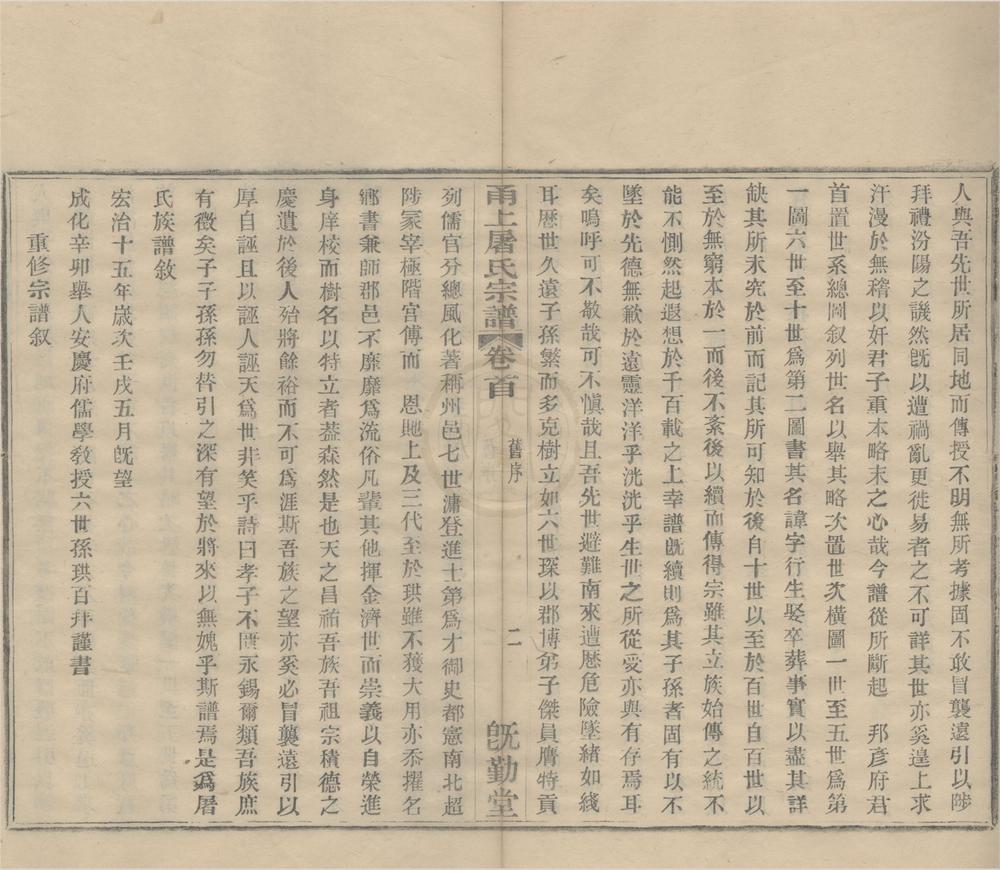 人與吾先世所居同地而傳授不明無所考據固不敢冒襲遠引以陟
拜禮汾陽之譏然旣以遭禍亂更徙易者之不可詳其世亦奚遑上求
汗漫於無稽以奸君子重本略末之心哉今譜從所斷起 邦彥府君
首置世系總圖叙列世名以舉其略次置世次橫圖一世至五世爲第
一圖六世至十世爲第二圖書其名諱字行生娶卒葬事實以盡其詳
缺其所未究於前而記其所可知於後自十世以至於百世自百世以
至於無窮本於一而後不紊後以續而傳得宗雖其立族始傳之統不
能不惻然起遐想於千百載之上幸譜旣續則爲其子孫者固有以不
墜於先德無歉於遠靈洋洋乎洸洸乎生世之所從受亦與有存焉耳
矣嗚呼可不敬哉可不愼哉且吾先世避難南來遭歷危險墜緒如綫
耳歷世久遠子孫繁而多克樹立如六世琛以郡博弟子傑員膺特貢
甬上屠氏宗譜 卷首 舊序 二 旣勤堂
列儒官分總風化著稱州邑七世滽登進士第爲才御史都憲南北超
陟冢宰極階宮傅而 恩貤上及三代至於珙雖不獲大用亦忝擢名
鄉書兼師郡邑不靡靡爲流俗凡輩其他揮金濟世而崇義以自榮進
身庠校而樹名以特立者葢森然是也天之昌祐吾族吾祖宗積德之
慶遺於後人殆將餘裕而不可爲涯斯吾族之望亦奚必冒襲遠引以
厚自誣且以誣人誣天爲世非笑乎詩曰孝子不匱永錫爾類吾族庶
有徵矣子子孫孫勿替引之深有望於將來以無媿乎斯譜焉是爲屠
氏族譜敘
宏治十五年歲次壬戌五月旣望
成化辛卯舉人安慶府儒學敎授六世孫珙百拜謹書
重修宗譜叙